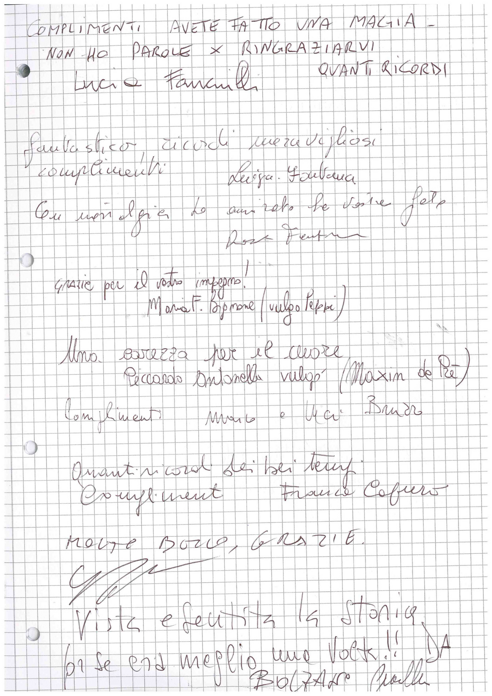 COMPLIMENTI AVETE FATTO UNA MAGIA -
NON HO PAROLE X RINGRAZIARVI
QUANTI RICORDI
Lucia
fantastico, ricordi meravigliosi
complimenti Luisa Fontana
Con nostalgia ho ammirato le vostre foto
Rosa
GRAZIE per il vostro impegno!
Maria F. (vulgo Peppi)
Una carezza per il cuore
Riccardo Antonella vulgo (Maxim de Rè)
Complimenti e
Quanti ricordi dei bei tempi
Compliment Franco Cafiero
MOLTO BELLO, GRAZIE.
Vista e sentita la storia
era meglio una volta!! DA
BOLZANO